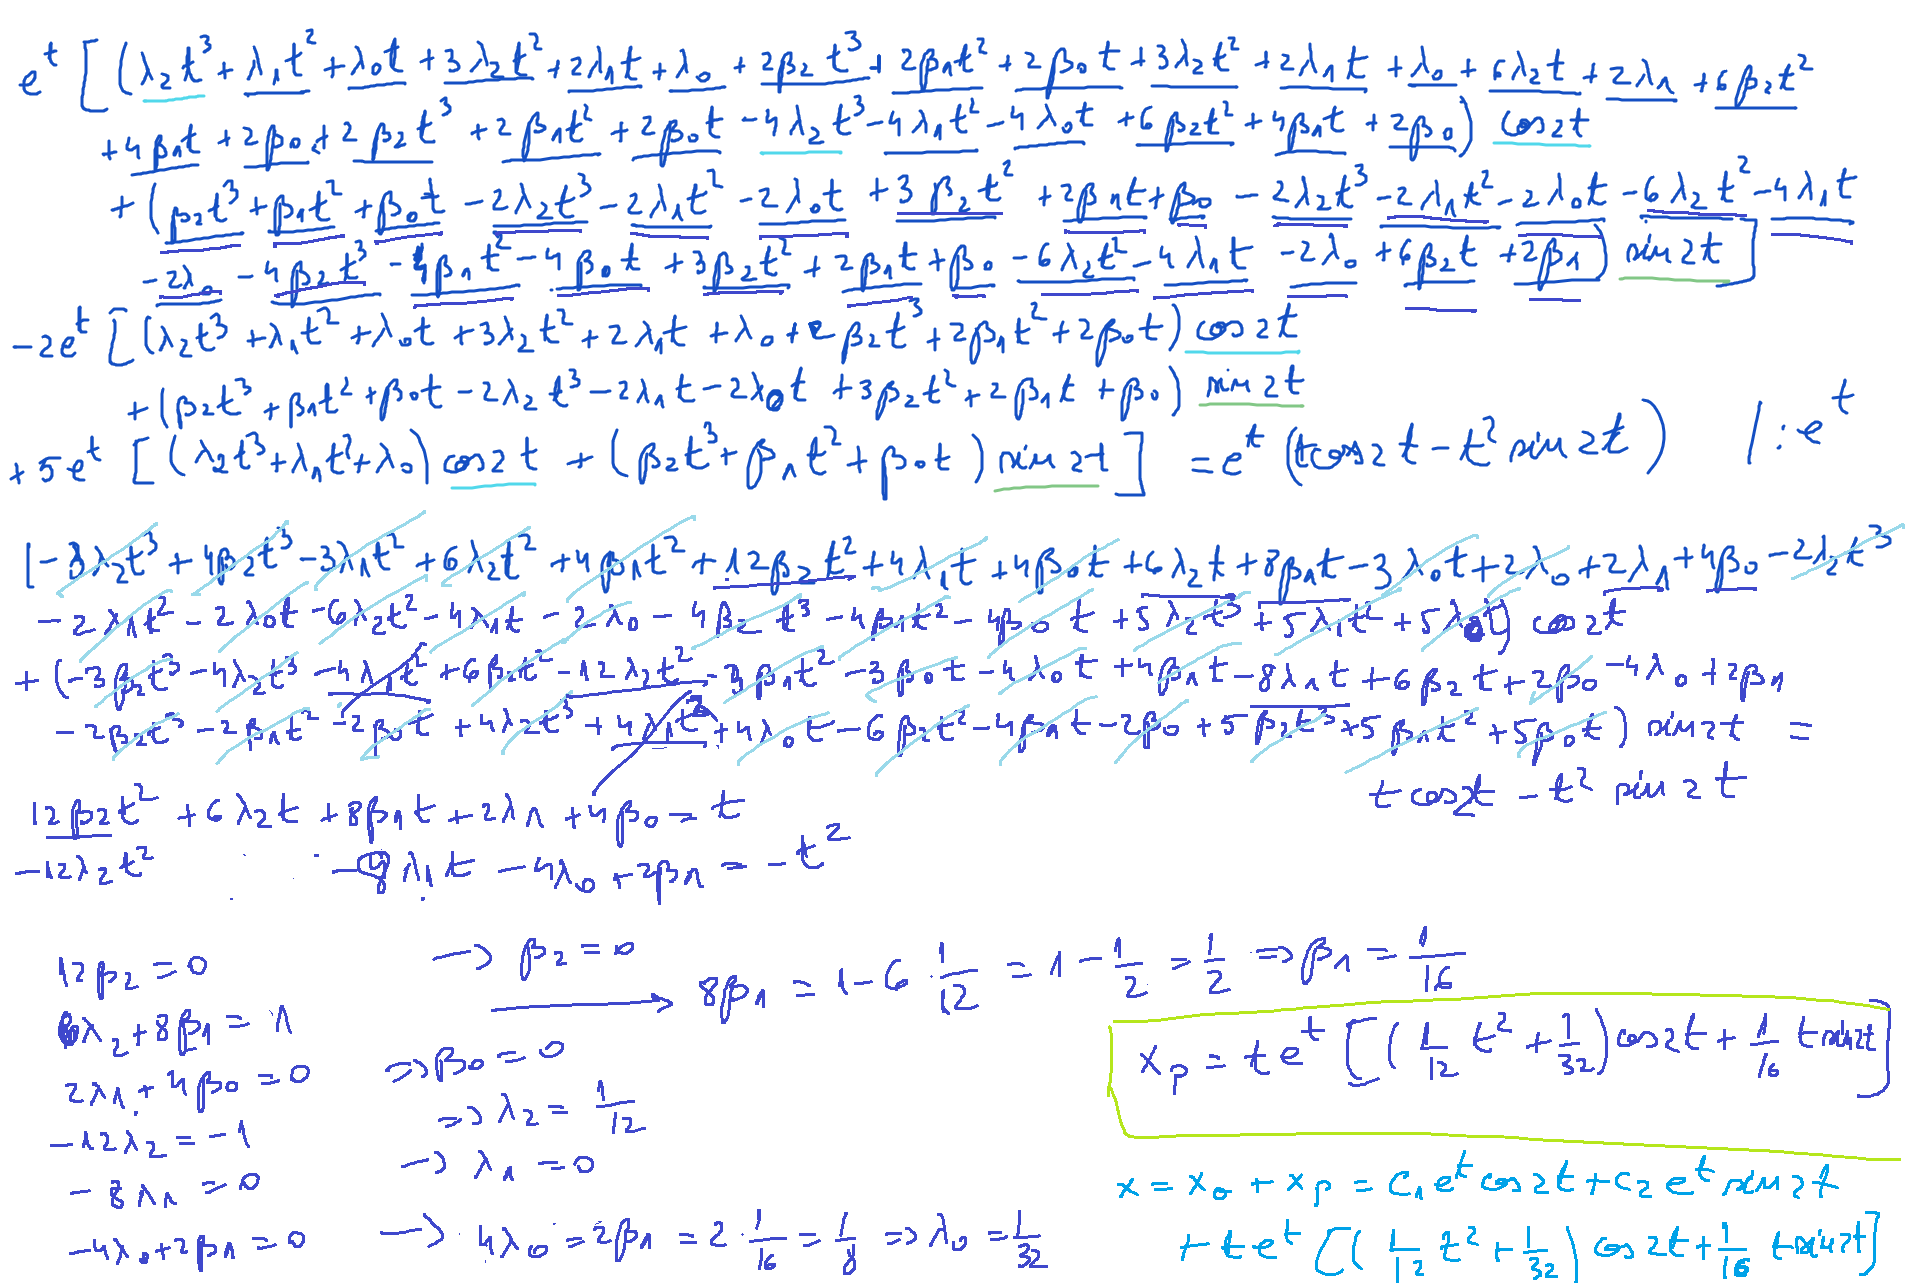 e^t [(λ₂t³+λ₁t²+λ₀t+3λ₂t²+2λ₁t+λ₀+2β₂t³+2β₁t²+2β₀t+3λ₂t²+2λ₁t+λ₀+6λ₂t+2λ₁+6β₂t²
+4β₁t+2β₀+2β₂t³+2β₁t²+2β₀t-4λ₂t³-4λ₁t²-4λ₀t+6β₂t²+4β₁t+2β₀) cos2t
+(β₂t³+β₁t²+β₀t-2λ₂t³-2λ₁t²-2λ₀t+3β₂t²+2β₁t+β₀-2λ₂t³-2λ₁t²-2λ₀t-6λ₂t²-4λ₁t
-2λ₀-4β₂t³-4β₁t²-4β₀t+3β₂t²+2β₁t+β₀-6λ₂t²-4λ₁t-2λ₀+6β₂t+2β₁) sin2t]
-2e^t [(λ₂t³+λ₁t²+λ₀t+3λ₂t²+2λ₁t+λ₀+2β₂t³+2β₁t²+2β₀t) cos2t
+(β₂t³+β₁t²+β₀t-2λ₂t³-2λ₁t-2λ₀t+3β₂t²+2β₁t+β₀) sin2t
+5e^t [(λ₂t³+λ₁t²+λ₀) cos2t+(β₂t³+β₁t²+β₀t) sin2t] = e^t (tcos2t-t²sin2t) /:e^t
(-3λ₂t³+4β₂t³-3λ₁t²+6λ₂t²+4β₁t²+12β₂t²+4λ₁t+4β₀t+6λ₂t+8β₁t-3λ₀t+2λ₀+2λ₁+4β₀-2λ₂t³
-2λ₁t²-2λ₀t-6λ₂t²-4λ₁t-2λ₀-4β₂t³-4β₁t²-4β₀t+5λ₂t³+5λ₁t²+5λ₀t) cos2t
+(-3β₂t³-4λ₂t³-4λ₁t²+6β₂t²-12λ₂t²-3β₁t²-3β₀t-4λ₀t+4β₁t-8λ₁t+6β₂t+2β₀-4λ₀+2β₁
-2β₂t³-2β₁t²-2β₀t+4λ₂t³+4λ₁t²+4λ₀t-6β₂t²-4β₁t-2β₀+5β₂t³+5β₁t²+5β₀t) sin2t =
t cos2t - t² sin2t
12β₂t²+6λ₂t+8β₁t+2λ₁+4β₀=t
-12λ₂t² -8λ₁t-4λ₀+2β₁=-t²
12β₂=0 → β₂=0
6λ₂+8β₁=1 → 8β₁=1-6·1/12=1-1/2=1/2 ⇒ β₁=1/16
2λ₁+4β₀=0 ⇒ β₀=0
-12λ₂=-1 ⇒ λ₂=1/12
-8λ₁=0 → λ₁=0
-4λ₀+2β₁=0 → 4λ₀=2β₁=2·1/16=1/8 ⇒ λ₀=1/32
x_p=te^t [(1/12 t²+1/32)cos2t+1/16 t sin2t]
x=x₀+x_p=C₁e^t cos2t+C₂e^t sin2t
+te^t [(1/12 t²+1/32) cos2t+1/16 t sin2t]